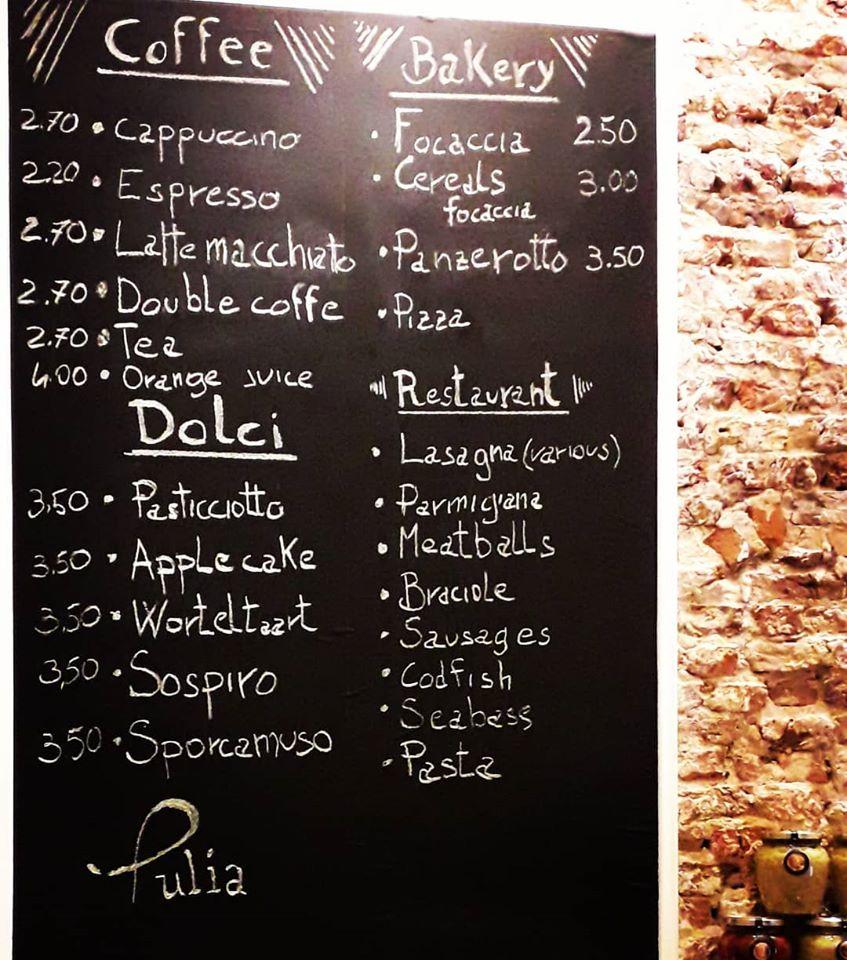 Coffee
2.70 • Cappuccino
2.20 • Espresso
2.70 • Latte macchiato
2.70 • Double coffe
2.70 • Tea
4.00 • Orange juice
Dolci
3,50 • Pasticciotto
3.50 • Apple cake
3,50 • Worteltaart
3,50 • Sospiro
3,50 • Sporcamuso
Pulia
Bakery
• Focaccia 2.50
• Cereals 3.00
focaccia
• Panzerotto 3.50
• Pizza
Restaurant
• Lasagna (various)
• Parmigiana
• Meatballs
• Braciole
• Sausages
• Codfish
• Seabass
• Pasta